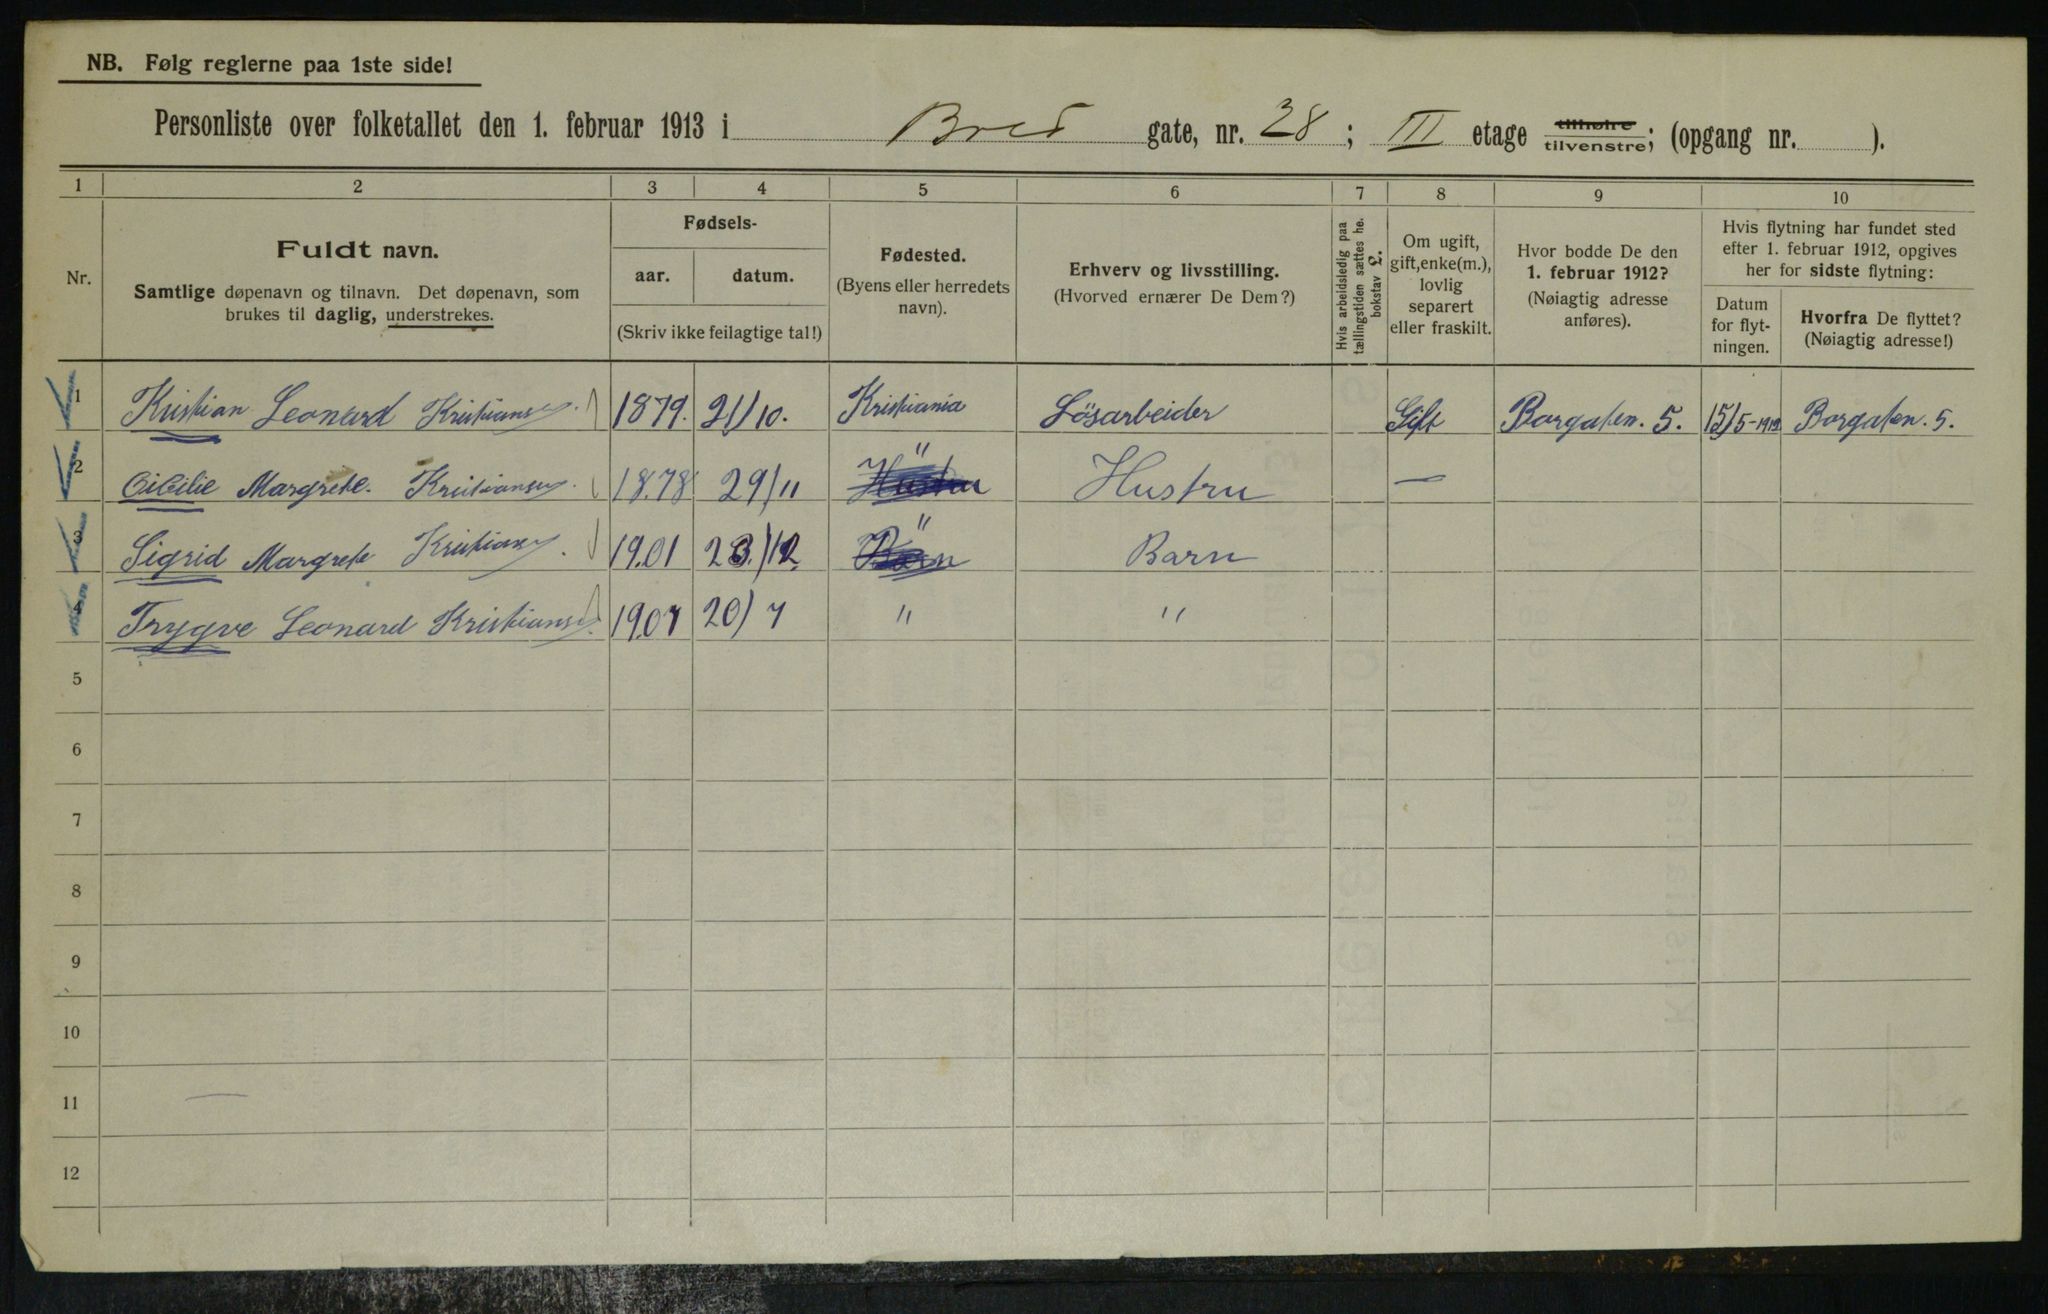 NB. Følg reglerne paa 1ste side!
Personliste over folketallet den 1. februar 1913 i Bred gate, nr. 28; III etage tilhøire tilvenstre; (opgang nr. ).
1 2 3 4 5 6 7 8 9 10
Nr.
Fuldt navn.
Samtlige døpenavn og tilnavn. Det døpenavn, som
brukes til daglig, understrekes.
Fødsels-
aar. datum.
(Skriv ikke feilagtige tal!)
Fødested.
(Byens eller herredets
navn).
Erhverv og livsstilling.
(Hvorved ernærer De Dem?)
Hvis arbeidsledig paa
tællingstiden sættes he.
bokstav L.
Om ugift,
gift, enke(m.),
lovlig
separert
eller fraskilt.
Hvor bodde De den
1. februar 1912?
(Nøiagtig adresse
anføres).
Hvis flytning har fundet sted
efter 1. februar 1912, opgives
her for sidste flytning:
Datum
for flyt-
ningen.
Hvorfra De flyttet?
(Nøiagtig adresse!)
1 Kristian Leonard Kristiansen. 1879. 21/10. Kristiania Lösarbeider Gift Borgaten. 5. 15/5-1912 Borgaten. 5.
2 Cicilie Margrete. Kristiansen. 1878 29/11 " Hustru Hustru —
3 Sigrid Margrete Kristiansen. 1901 23./12. " Barn Barn
4 Trygve Leonard Kristiansen. 1907 20/7 " "
5
6
7
8
9
10
11
12